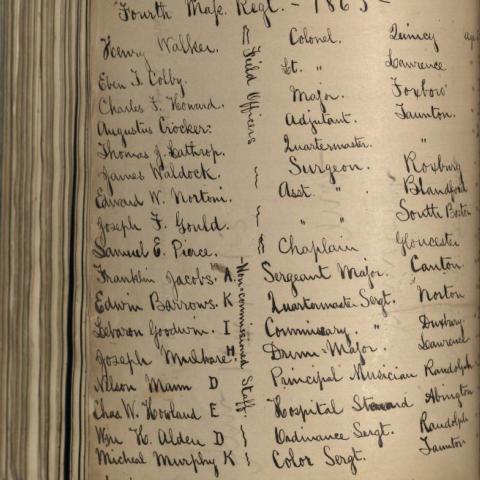 Fourth Mass. Regt. - 1863 -
Henry Walker. Colonel. Quincy
Eben T. Colby. Lt. " Lawrence
Charles F. Howard. Major. Foxboro'
Augustus Crocker. Adjutant. Taunton.
Thomas J. Lathrop. Quartermaster. "
James Waldock. Surgeon. Roxbury
Edward W. Norton. Asst. " Blandford
Joseph F. Gould. " " South Boston
Samuel E. Pierce. Chaplain Gloucester
Field Officers
Franklin Jacobs. A. Sergeant Major. Canton.
Edwin Barrows. K Quartermaster Sergt. Norton
Lebaron Goodwin. I Commissary. " Duxbury.
Joseph H Drum-Major. Lawrence
Nelson Mann D Principal Musician Randolph
Chas. W. Howland E Hospital Steward Abington
Wm H. Alden D Ordinance Sergt. Randolph
Micheal Murphy K Color Sergt. Taunton
Non-commissioned Staff